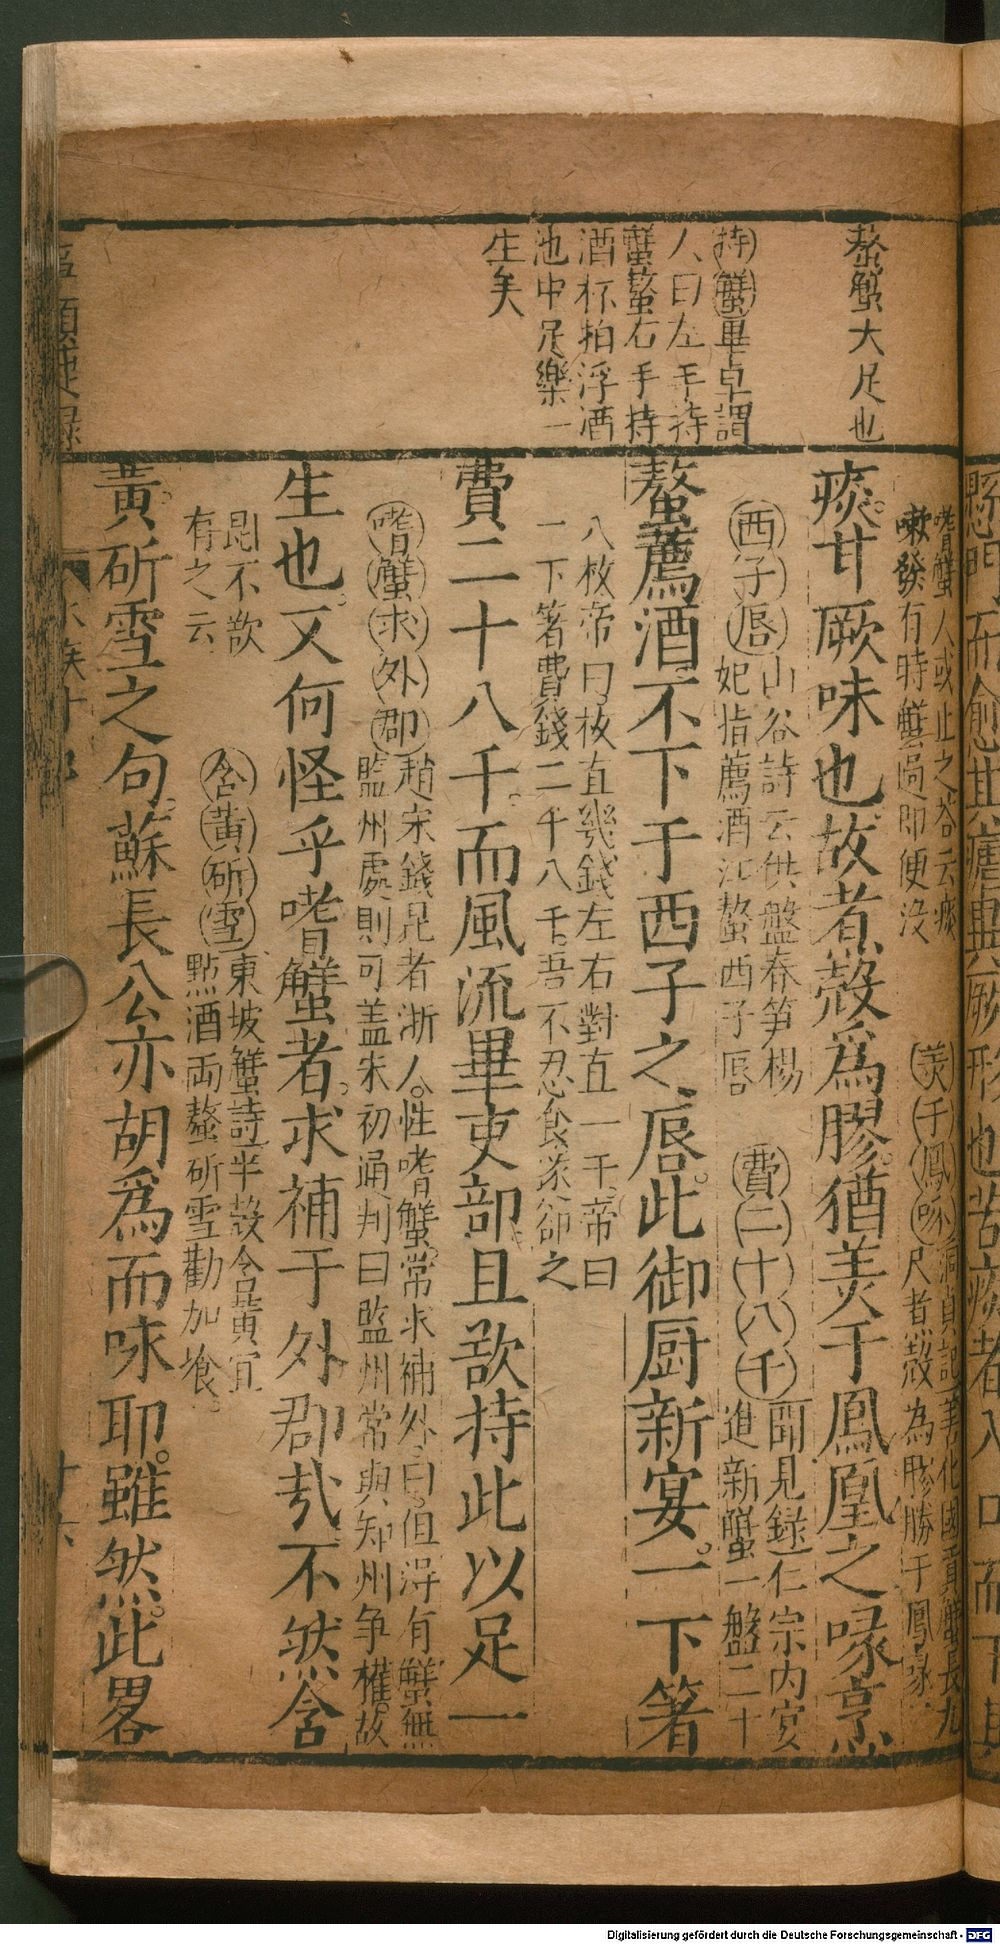 螯蟹大足也
持蟹畢卓謂
人曰左手持
蟹螯右手持
酒杯拍浮酒
池中足樂一
生矣
嗜蟹人或止之答云痰
嗽發有時蟹過即便没
羙千鳳喙
洞貞記善化國貢蟹長九
尺煮殼為膠勝于鳳喙
痰甘厥味也故煮殼爲膠猶羙于鳳凰之喙烹
西子唇
山谷詩云供盤春笋楊
妃指薦酒江螯西子唇
費二十八千
聞見録仁宗内宴
進新蟹一盤二十
螯薦酒不下于西子之唇此御厨新宴一下箸
八枚帝曰枚直幾錢左右對直一千帝曰
一下箸費錢二千八千吾不忍食遂卻之
費二十八千而風流畢吏部且欲持此以足一
嗜蟹求外郡
趙宋錢昆者浙人性嗜蟹常求補外曰但淂有蟹無
監州處則可盖宋初通判曰監州常與知州争權故
生也又何怪乎嗜蟹者求補于外郡㦲不然含
昆不欲
有之云
含黄斫雪
東坡蟹詩半殻含黄宜
㸃酒兩螯斫雪勸加飡
黄斫雪之句蘇長公亦胡爲而咏耶雖然此畧
Digitalisierung gefördert durch die Deutsche Forschungsgemeinschaft - DFG